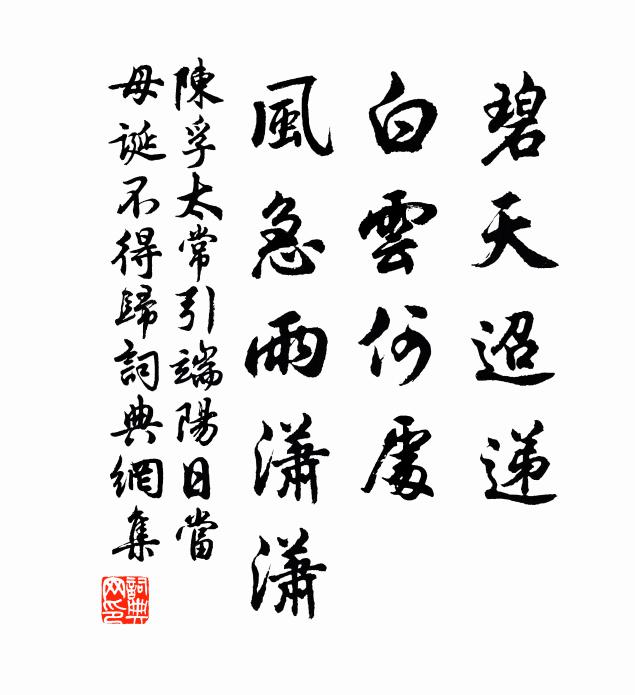 碧天迢递
白雲何處
風急雨瀟瀟
陳孚太常引端陽日當
母誕不得歸詞典網集
詞典
网印